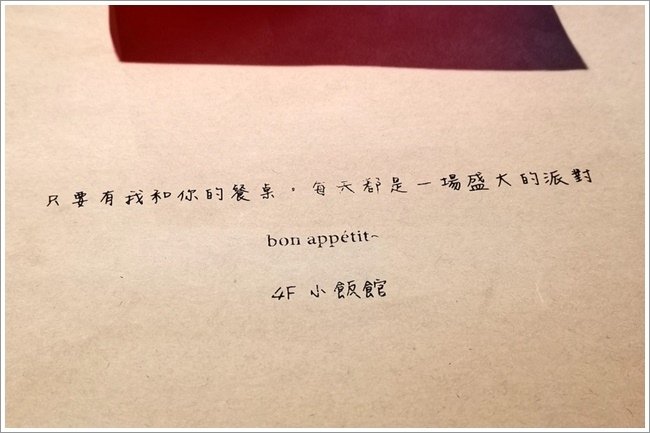 只要有我和你的餐桌。每天都是一場盛大的派對
bon appétit~
4F 小飯館